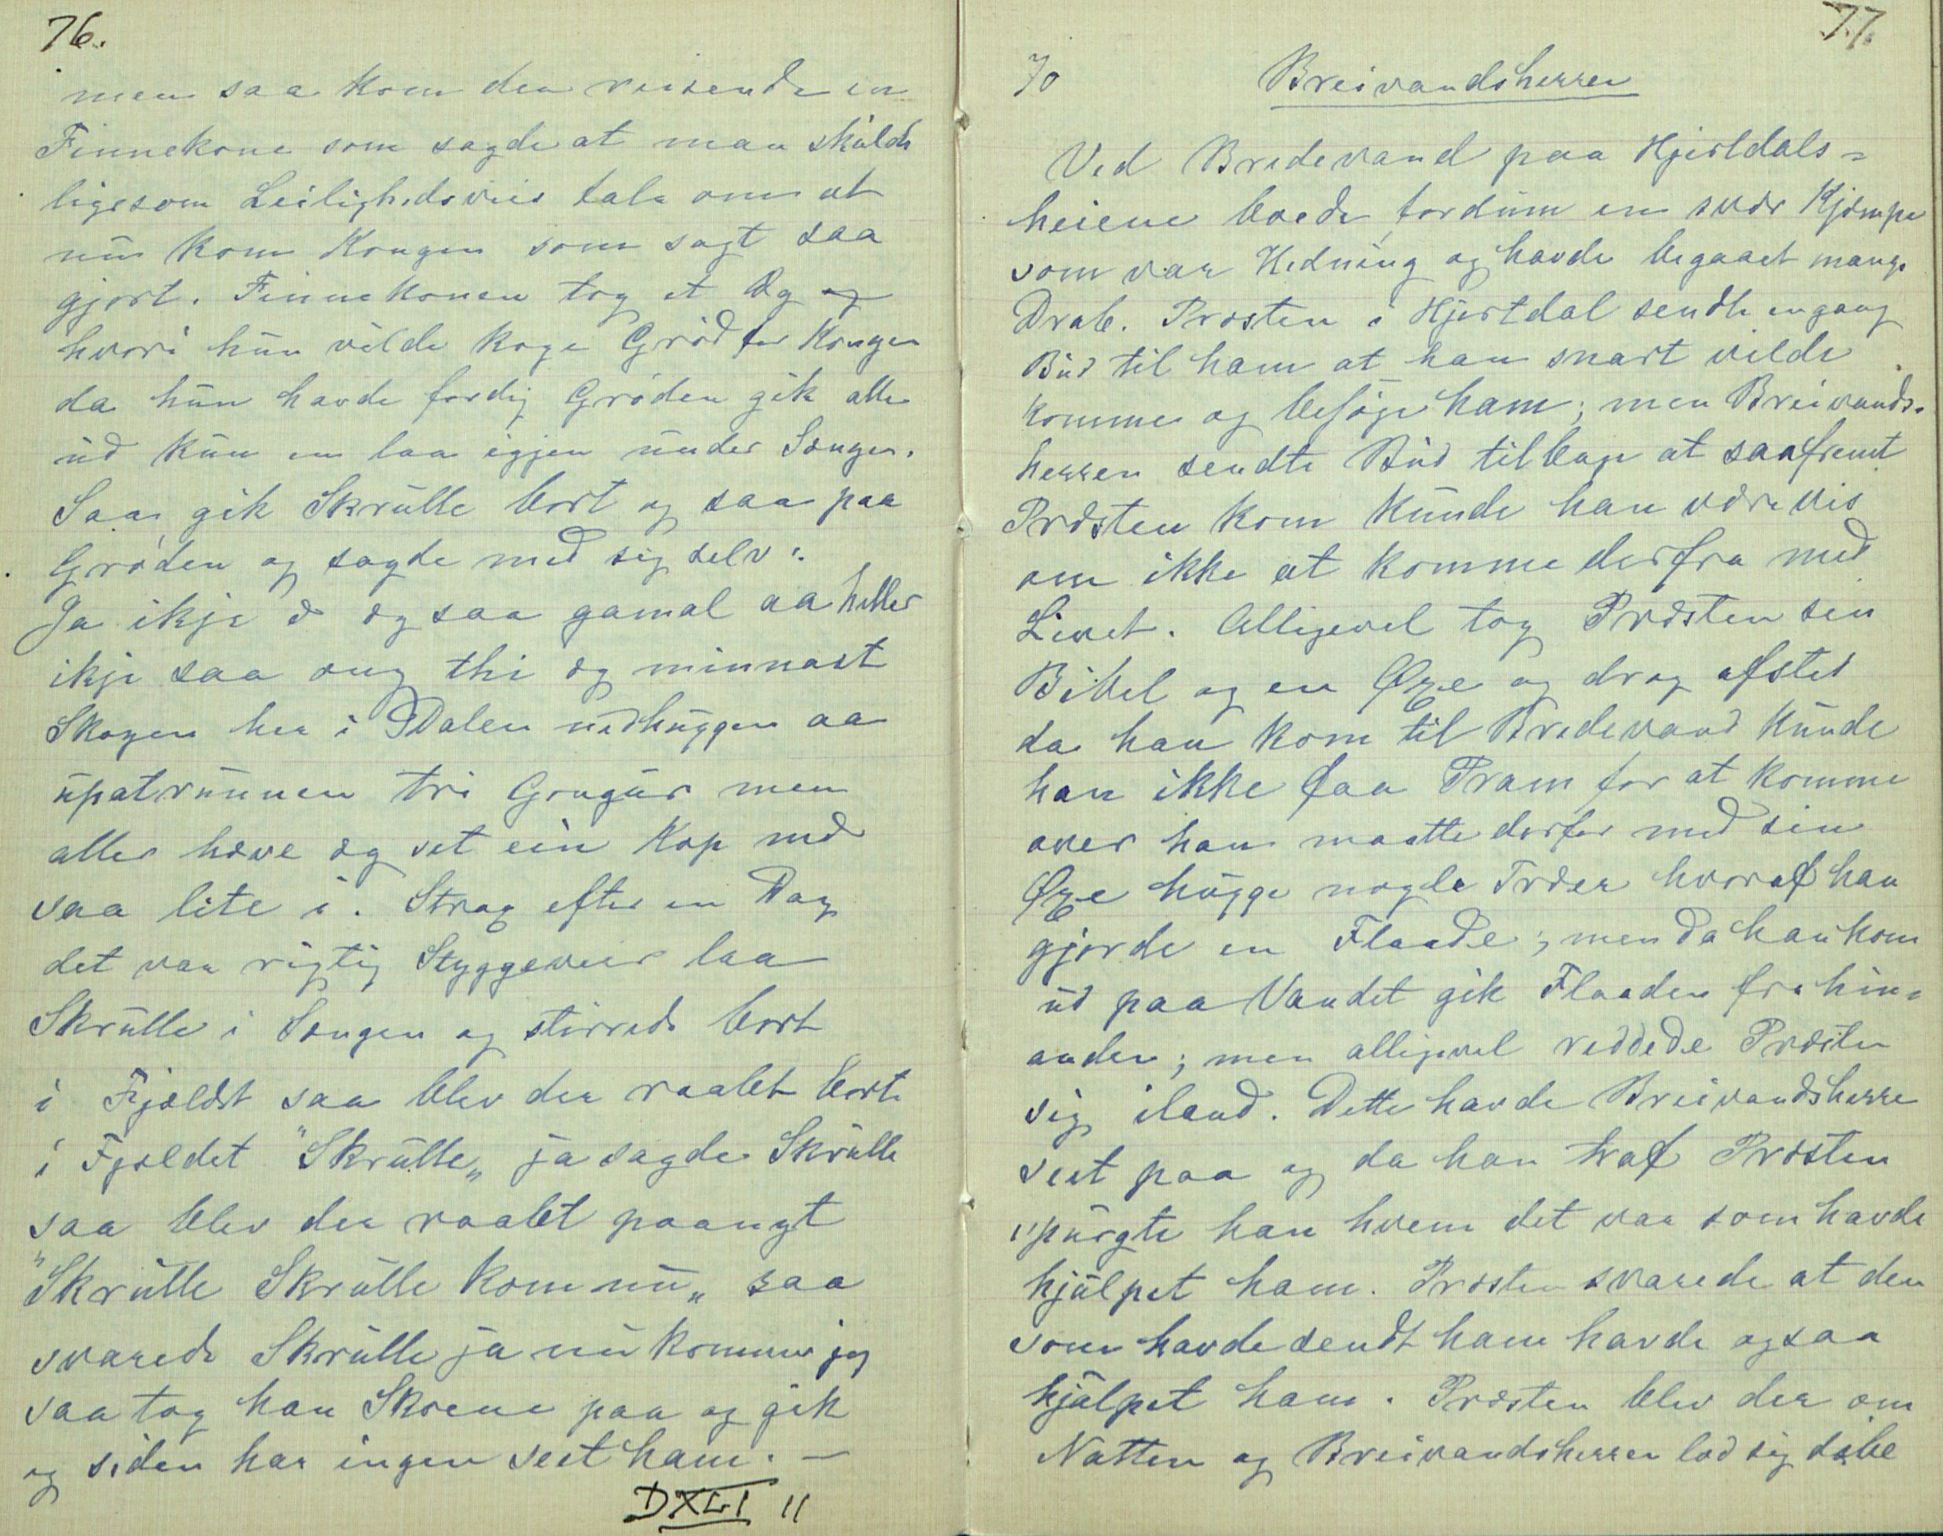 76.
men saa kom der reisende en
Finnekone som sagde at man skulde
ligesom Leilighedsviis tala om at
nu kom Kongen som sagt saa
gjort. Finnekonen tog et Æg og
hvori hun vilde koge Grød for Kongen
da hun havde færdig Grøden gik alle
ud kun en laa igjen under Sengen.
Saa gik Skrulle bort og saa paa
Grøden og sagde med sig selv:
Ja ikje æ æg saa gamal aa heller
ikje saa ung thi æg minnast
Skogen her i Dalen nedhuggen aa
upatrunnen tri Gongur men
aller hæve æg set ein Kop med
saa lite i. Strax efter en Dag
det var rigtig Styggeveir laa
Skrulle i Sængen og stirrede bort
i Fjældet saa blev der raabt bort
i Fjeldet "Skrulle„ ja sagde Skrulle
saa blev der raabt paanyt
"Skrulle Skrulle kom nu„ saa
svarede Skrulle ja nu kommer jeg
saa tog han Skoene paa og gik
og siden har ingen seet ham. —
DXLI 11
77.
70 Breivandsherren
Ved Bredevand paa Hjertdals=
heiene boede fordum en svær Kjæmpe
som var Hedning og havde begaaet mange
Drab. Præsten i Hjertdal sendte engang
Bud til ham at han snart vilde
komme og besøge ham; men Breivands-
herren sendte Bud tilbage at saafremt
Præsten kom kunde han være vis
om ikke at komme derfra med
Livet. Alligevel tog Præsten sin
Bibel og en Øxe og drog afsted
da han kom til Bredevand kunde
han ikke faa Pram for at komme
over han maatte derfor med sin
Øxe hugge nogle Træer hvoraf han
gjorde en Flaade; men da han kom
ud paa Vandet gik Flaaden fra hin=
anden; men alligevel reddede Præsten
sig iland. Dette havde Breivandsherre
seet paa og da han traf Præsten
spurgte han hvem det var som havde
hjulpet ham. Præsten svarede at den
som havde sendt ham havde ogsaa
hjulpet ham. Præsten blev der om
Natten og Breivandsherren lod sig døbe